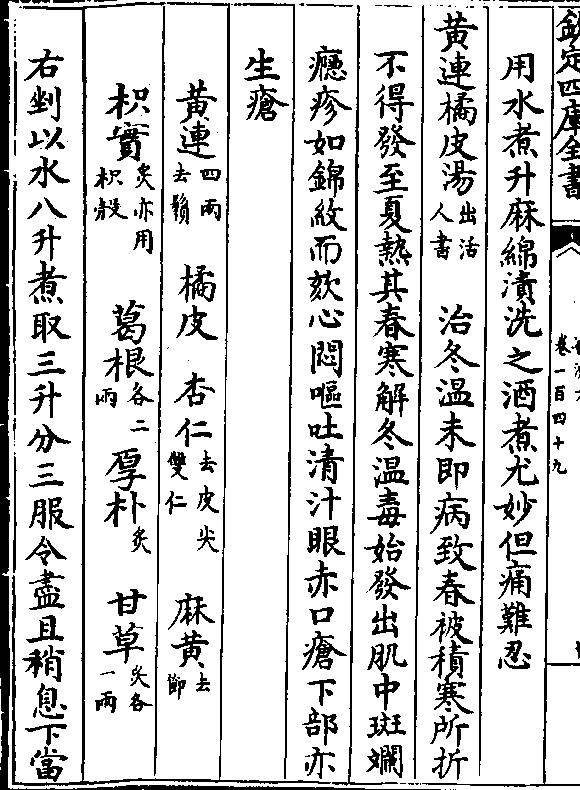 欽定四庫全書
卷一百四十九
用水煮升麻綿漬洗之酒煮尤妙但痛難忍
黄連橘皮湯出活人書 治冬温未即病致春被積寒所折
不得發至夏熱其春寒解冬温毒始發出肌中斑斕
癮疹如錦紋而欬心悶嘔吐清汁眼赤口瘡下部亦
生瘡
黄連四兩去鬚 橘皮 杏仁去皮尖雙仁 麻黄去節
枳實炙亦用枳殼 葛根各二兩 厚朴炙 甘草炙各一兩
右剉以水八升煮取三升分三服令盡且稍息下當